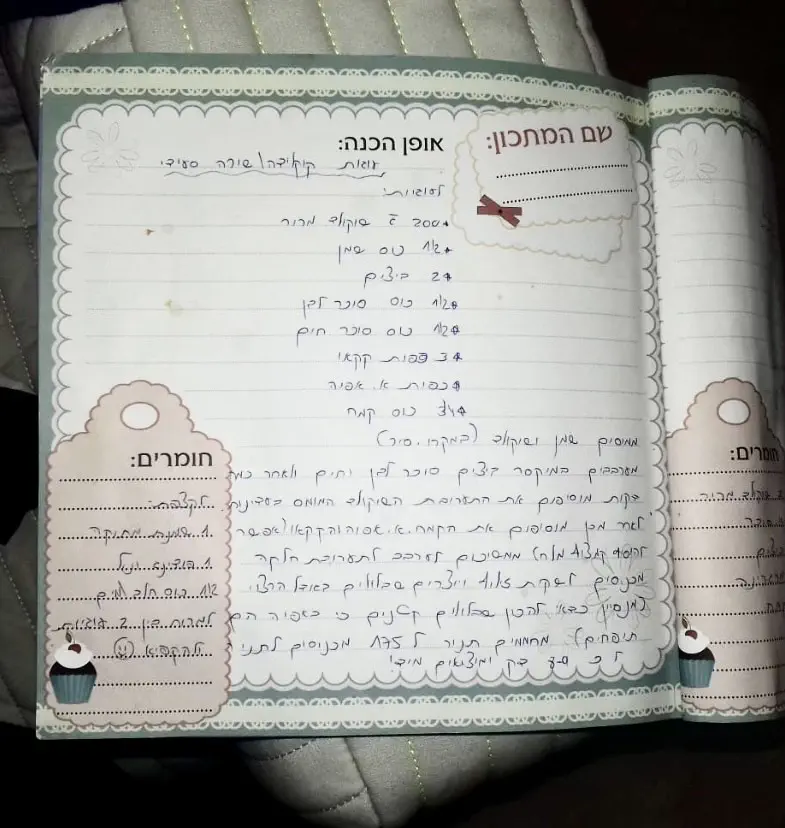 שם המתכון:
אופן הכנה:
עוגות קוקילדה\ שירה סעידי
לעוגיות:
200 ג שוקולד מריר
1/2 כוס שמן
2 ביצים
1/2 כוס סוכר לבן
1/2 כוס סוכר חום
3 כפות קקאו
כפית א. אפיה
3/4 כוס קמח
ממיסים שמן ושוקולד (במקרו, סיר)
מערבבים במיקסר ביצים סוכר לבן וחום ולאחר כמה
דקות מוסיפים את תערובת השוקולד המומס בעדינות
לאחר מכן מוסיפים את הקמח.א.אפיה והקקאו (אפשר
להוסיף קצת מלח) ממשיכים לערבב לתערובת חלקה
מכניסים לשקית זילוף ויוצרים שבלולים בגודל הרצוי
(מנסיון כדאי להכין שבלולים קטנים כי באפיה הם
תופחים) מחממים תנור ל 175 מכניסים לתנור
ל דק ומוציאים מיד!
חומרים:
לקצפת:
1 שמנת מתוקה
1 פודינג וניל
1/2 כוס חלב\מים
למרוח בין 2 עוגיות
ולהקפיא
חומרים:
שוקולד מריר
סוכר
ביצים
קמח